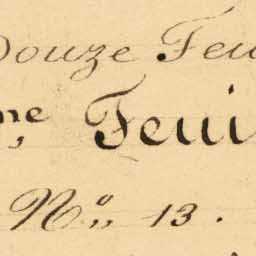 Douze Feu
me, Feui
No,, 13.